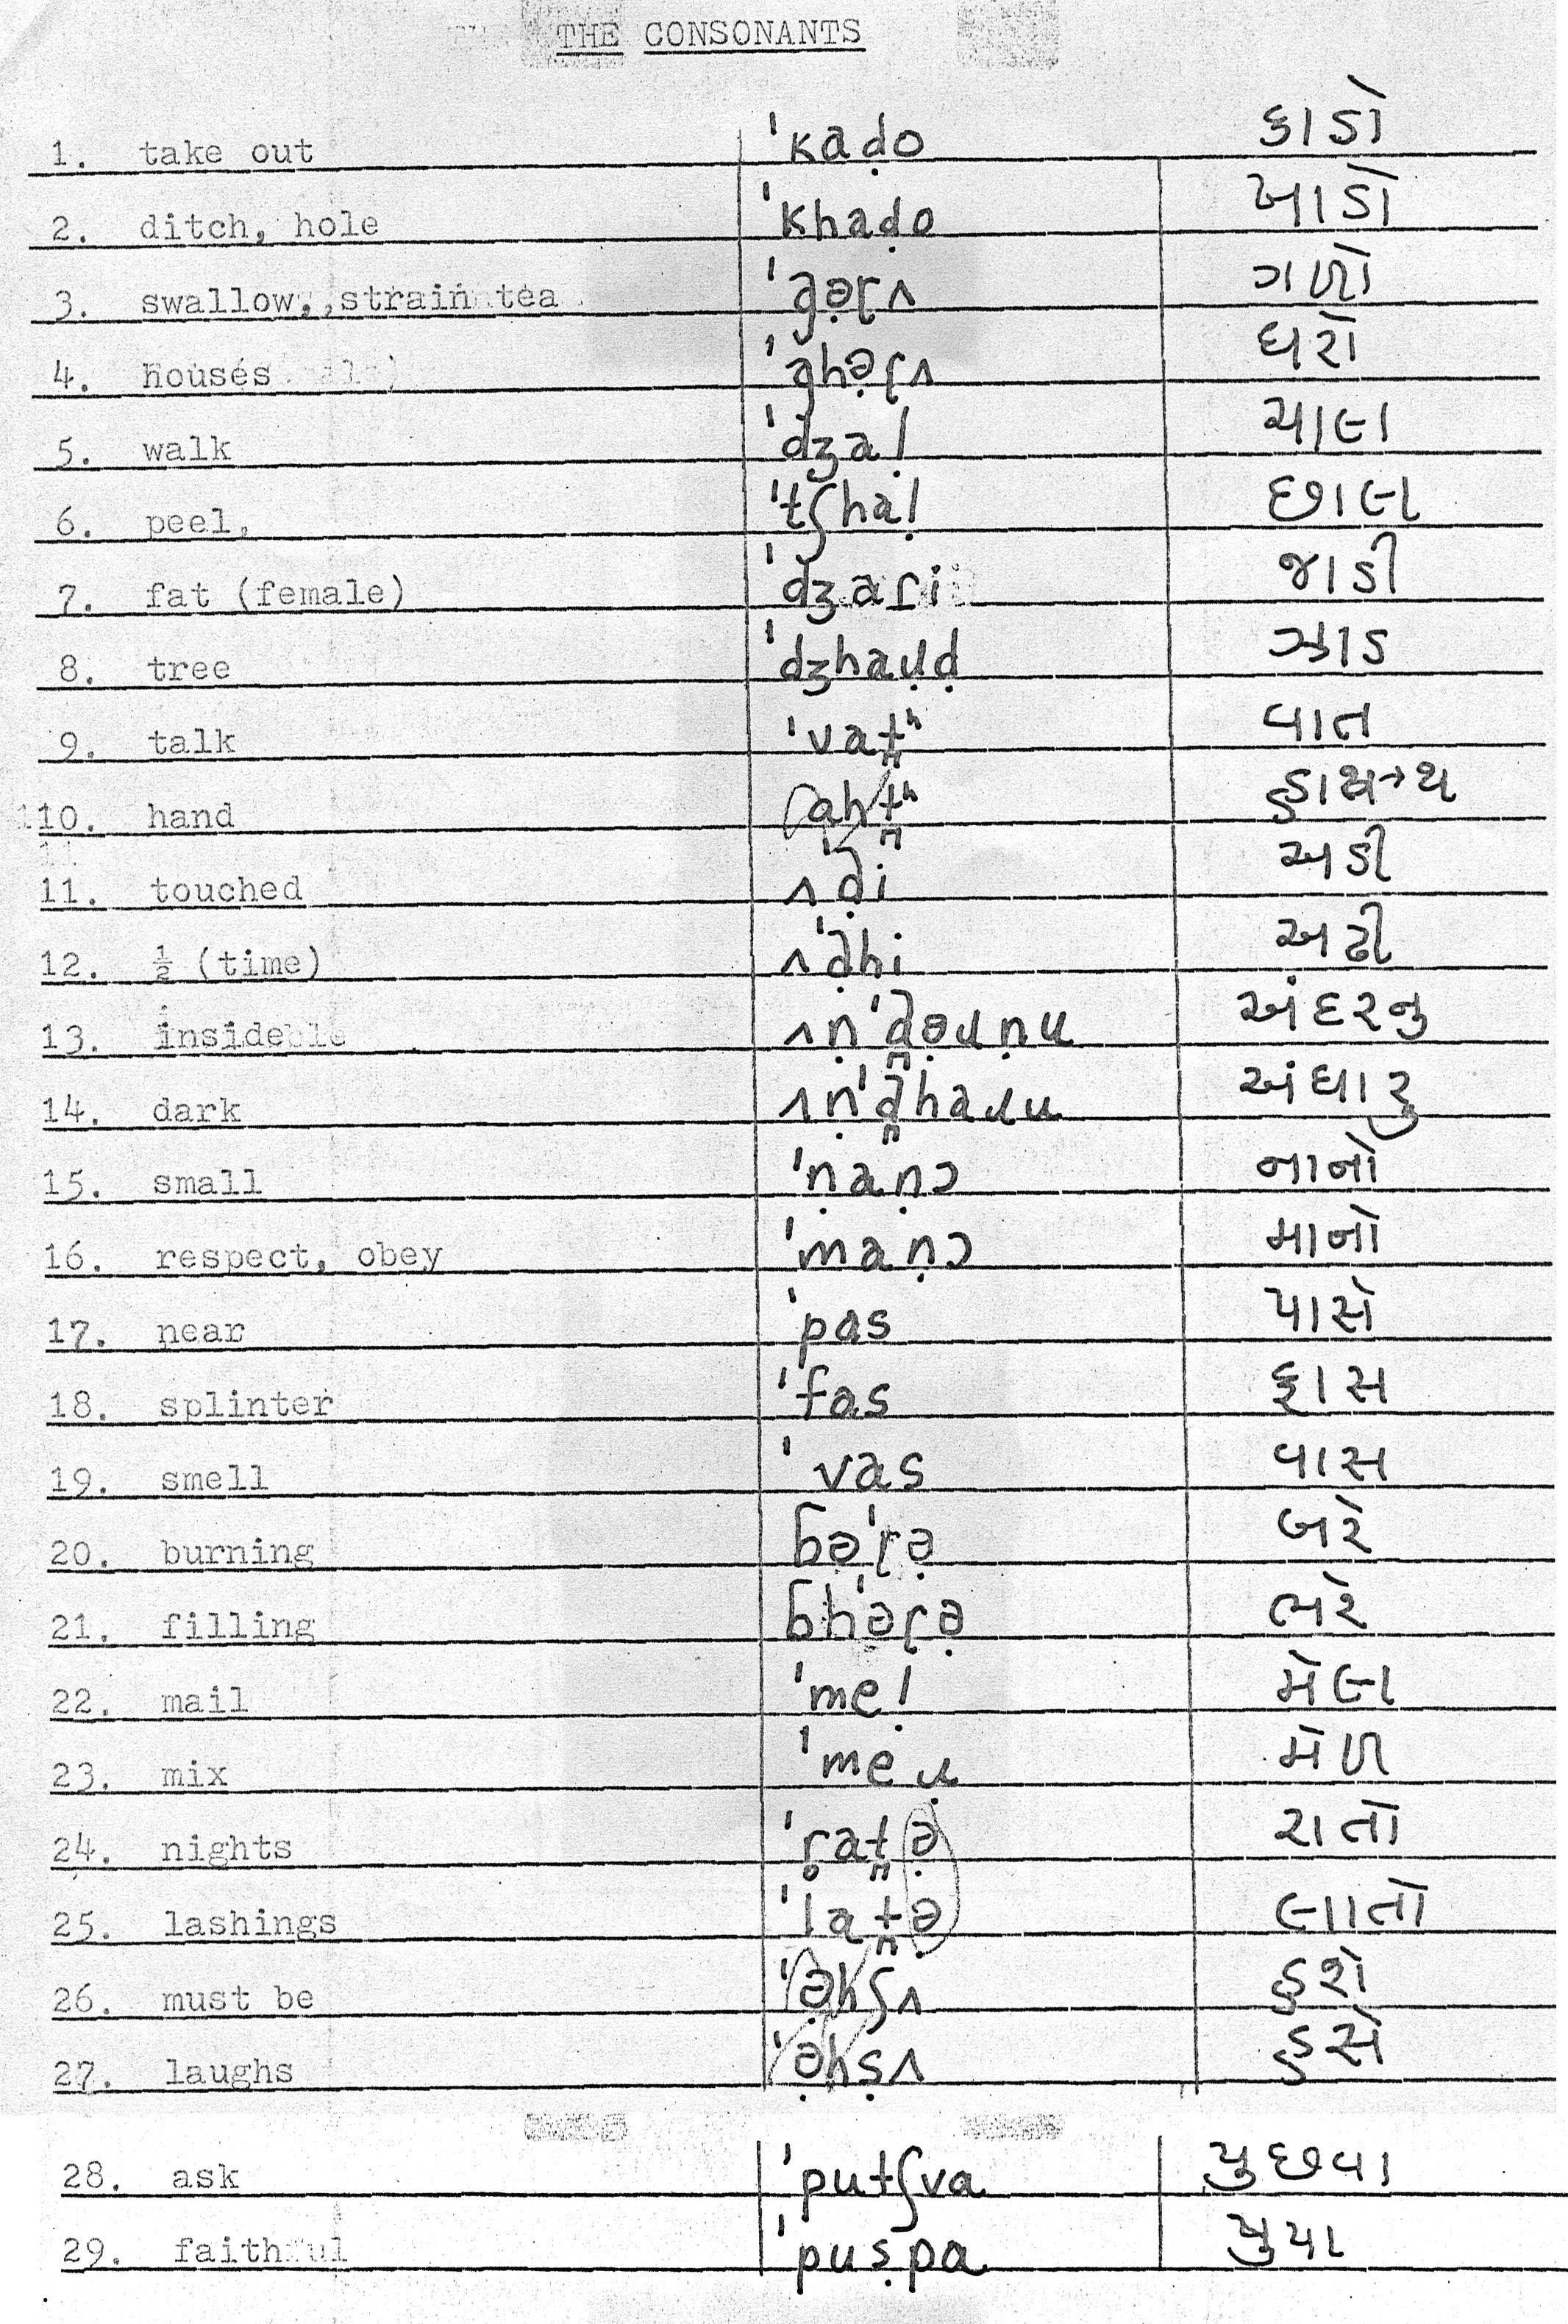 THE CONSONANTS
1. take out 'kaḍo કાડો
2. ditch, hole 'khaḍo ખાડો
3. swallow, strain tea 'gə̣ɽʌ ગળો
4. houses 'ghə̣ɽʌ ઘરો
5. walk 'dʒaḷ ચાલ
6. peel, 'tʃhaḷ છાલ
7. fat (female) 'dʒaɽi જાડી
8. tree 'dʒhaɹ̣ḍ ઝાડ
9. talk 'vat̪ʰ વાત
10. hand aht̪ʰ હાથ→થ
11. touched ʌ'ḍi અડી
12. ½ (time) ʌ'ḍhi અઢી
13. inside ʌṇ'd̪ə̣ɹṇu અંદરનુ
14. dark ʌṇ'd̪haɹu અંધારુ
15. small 'ṇaṇɔ નાનો
16. respect, obey 'maṇɔ માનો
17. near 'pas પાસે
18. splinter 'fas ફાસ
19. smell 'vas વાસ
20. burning ɓə̣'ɽə̣ બરે
21. filling ɓh'ə̣ɽə̣ ભરે
22. mail 'meḷ મેલ
23. mix 'meɹ̣ મેળ
24. nights 'r̥at̪ə̣ રાતો
25. lashings 'lat̪ə̣ લાતો
26. must be 'ə̣hʃʌ હશે
27. laughs 'ə̣hṣʌ હસે
28. ask 'putʃva પુછવા
29. faithful 'puṣpa પુપા